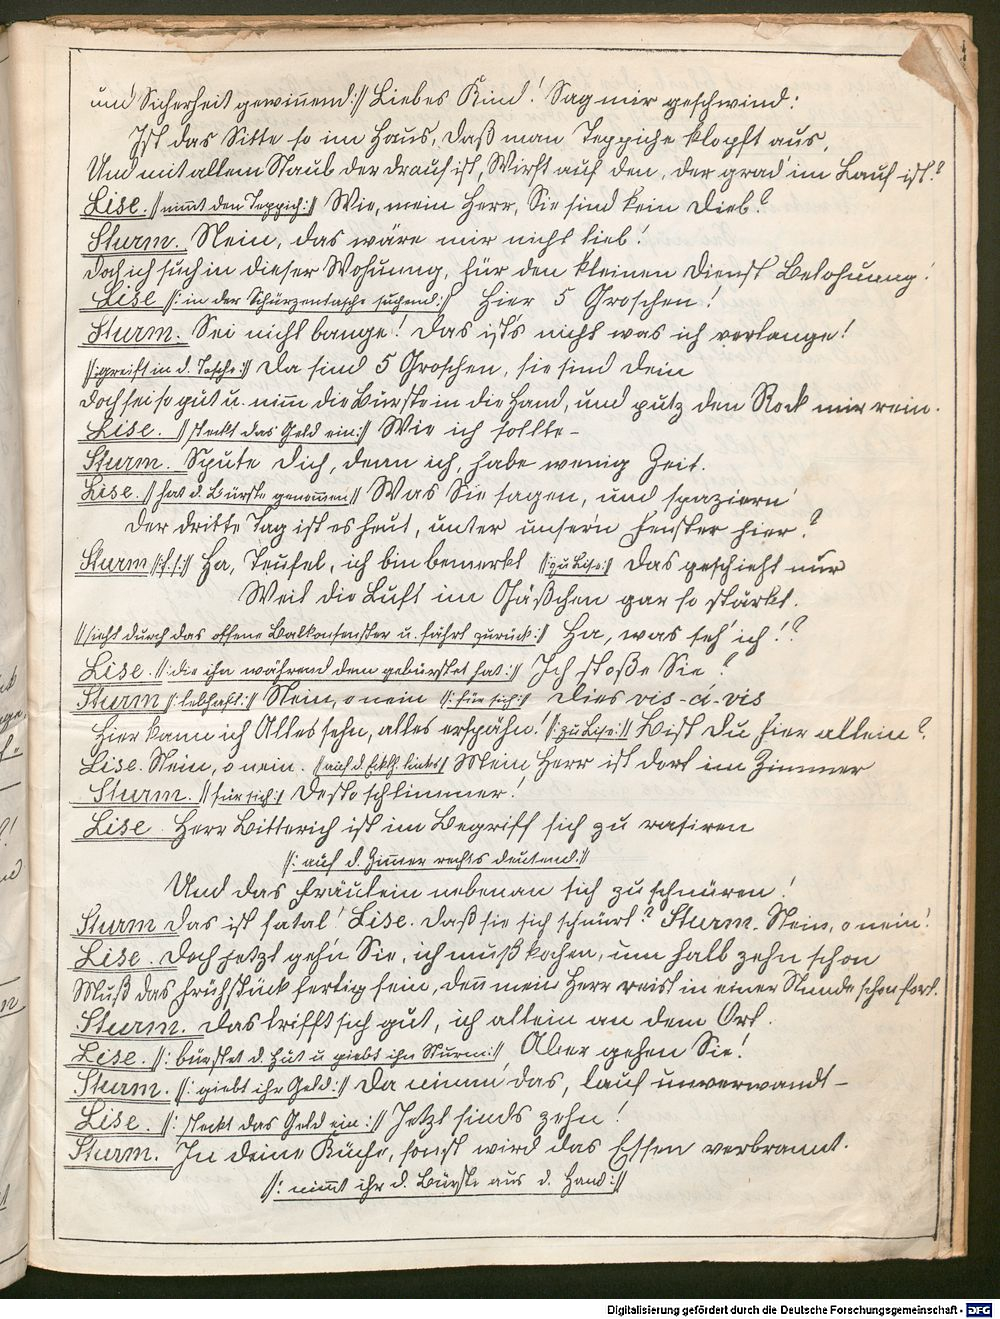 und Sicherheit gewinnend:// Liebes Kind! Sag mir geschwind:
Ist das Sitte so im Haus, daß man Teppiche klopft aus,
Und mit allem Staub der drauf ist, Wirft auf den, der grad' im Lauf ist?
Lise. //nimmt den Teppich:// Wie, mein Herr, Sie sind kein Dieb?
Sturm. Nein, das wäre mir nicht lieb!
Doch ich such in dieser Wohnung, für den kleinen Dienst Belohnung!
Lise //: in der Schürzentasche suchend:// Hier 5 Groschen!
Sturm. Sei nicht bange! Das ist's nicht was ich verlange!
//:greift in d. Tasche:// Da sind 5 Groschen, sie sind dein
Doch sei so gut u. nimm die Bürste in die Hand, und putz den Rock mir rein.
Lise. //steckt das Geld ein:// Wie ich sollte-
Sturm. Spute Dich, denn ich, habe wenig Zeit.
Lise. //hat d. Bürste genommen// Was Sie sagen, und spaziern'
Der dritte Tag ist es heut, unter unser'n Fenster hier?
Sturm //:f. s:// Ha, Teufel, ich bin bemerkt //:zu Lise:// Das geschieht nur
Weil die Luft im Gäßchen gar so stärkt.
//sieht durch das offene Balkonfenster u. fährt zurück:// Ha, was seh' ich!?
Lise. //:die ihn während dem gebürstet hat:// Ich stoße Sie?
Sturm //:lebhaft:// Nein, o nein //: für sich:// Dies vis-à-vis
Hier kann ich Alles sehn, alles erspähn! //:zu Lise:// Bist Du hier allein?
Lise. Nein, o nein. //auf d. Eckth. links// Mein Herr ist dort im Zimmer
Sturm. //für sich:// Desto schlimmer!
Lise. Herr Bitterich ist im Begriff sich zu rasiren
//: auf d. Zimmer rechts deutend://
Und das Fräulein nebenan sich zu schnüren!
Sturm Das ist fatal! Lise. Daß sie sich schnürt? Sturm. Nein, o nein!
Lise. Doch jetzt geh'n Sie, ich muß kochen, um halb zehn schon
Muß das Frühstück fertig sein, denn mein Herr reist in einer Stunde schon fort.
Sturm. Das trifft sich gut, ich allein an dem Ort.
Lise. //: bürstet d. Hut u giebt ihn Sturm:// Aber gehen Sie!
Sturm. //: giebt ihr Geld:// Da nimm' das, lauf unverwandt-
Lise. //: steckt das Geld ein:// Jetzt sinds zehn!
Sturm. In deine Küche, sonst wird das Essen verbrannt.
//: nimmt ihr d. Bürste aus d. Hand://
Digitalisierung gefördert durch die Deutsche Forschungsgemeinschaft - DFG